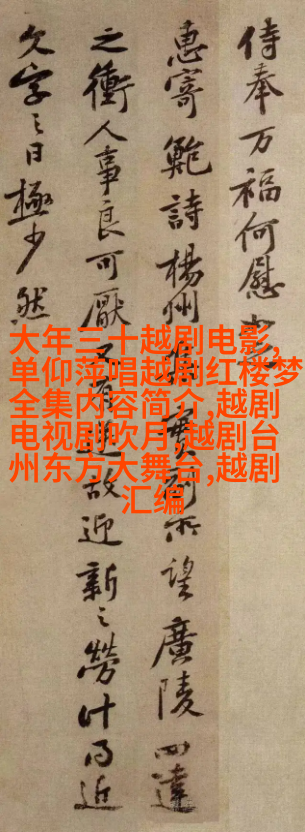 侍奉万福何慰
惠寄鮑詩楊州集實副所望廣陵四達
之衝人事良可厭又有送故迎新之勞计日近
文字之日極少然
大年三十越剧电影,
单仰萍唱越剧红楼梦
全集内容简介,越剧
电视剧吹月,越剧台
州东方大舞台,越剧
汇编